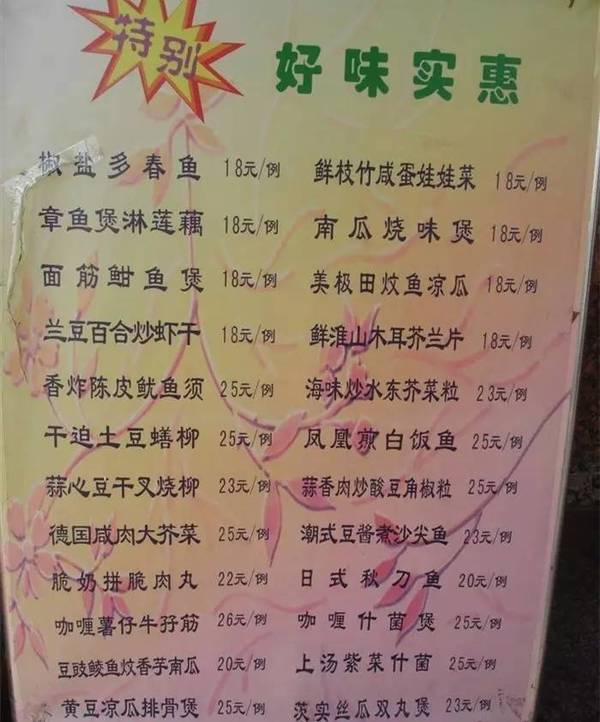 特别
好味实惠
椒盐多春鱼 18元/例
章鱼煲淋莲藕 18元/例
面筋鲋鱼煲 18元/例
兰豆百合炒虾干 18元/例
香炸陈皮鱿鱼须 25元/例
干迫土豆鳝柳 25元/例
蒜心豆干叉烧柳 23元/例
德国咸肉大芥菜 25元/例
脆奶拼脆肉丸 22元/例
咖喱薯仔牛孖筋 26元/例
豆豉鲮鱼炆香芋南瓜 20元/例
黄豆凉瓜排骨煲 25元/例
鲜枝竹咸蛋娃娃菜 18元/例
南瓜烧味煲 18元/例
美极田炆鱼凉瓜 18元/例
鲜淮山木耳芥兰片 18元/例
海味炒水东芥菜粒 23元/例
凤凰煎白饭鱼 25元/例
蒜香肉炒酸豆角椒粒 25元/例
潮式豆酱煮沙尖鱼 23元/例
日式秋刀鱼 20元/例
咖喱什菌煲 25元/例
上汤紫菜什菌 25元/例
茨实丝瓜双丸煲 23元/例